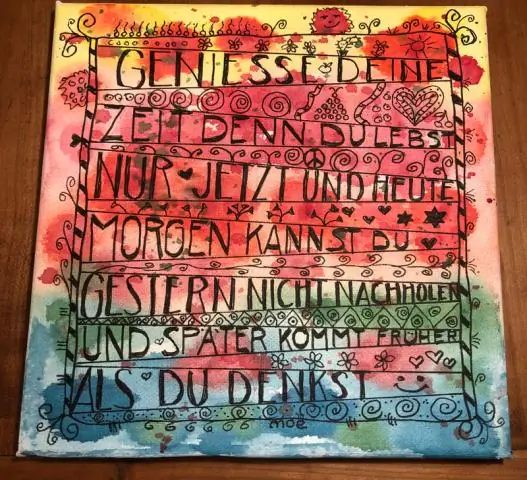 GENIESSE DEINE
ZEIT DENN DU LEBST
NUR JETZT UND HEUTE
MORGEN KANNST DU
GESTERN NICHT NACHHOLEN
UND SPÄTER KOMMT FRÜHER
ALS DU DENKST
moe